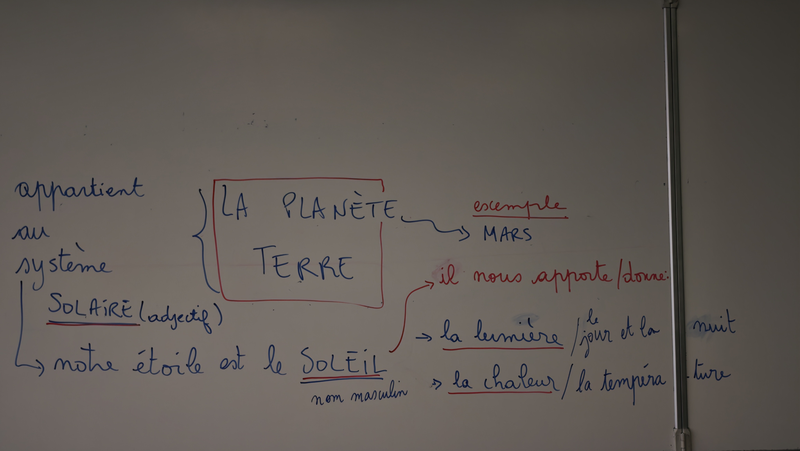 appartient
au
système
SOLAIRE (adjectif)
LA PLANÈTE
TERRE
exemple
MARS
notre étoile est le SOLEIL
nom masculin
il nous apporte/donne:
→ la lumière / le jour et la nuit
→ la chaleur / la température